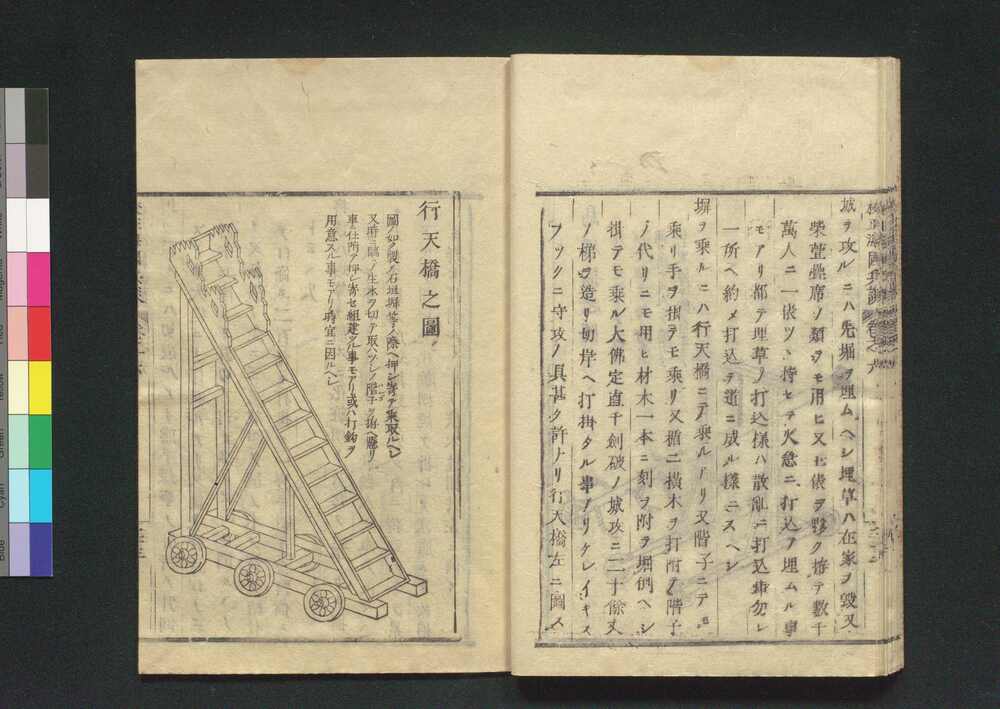 城ヲ攻ルニハ先堀ヲ埋ムヘシ埋草ハ在家ヲ毀又
柴萱疊席ノ類ヲモ用ヒ又土俵ヲ夥ク拵テ數千
萬人ニ一俵ツヽ持セテ火急ニ打込テ埋ムル事
モアリ都テ埋草ノ打込樣ハ散亂ニ打込事勿レ
一所ヘ約メ打込テ道ニ成ル樣ニスヘシ
塀ヲ乘ルニハ行天橋ニテ乘ルアリ又階子ニテモ
乘リ手ヲ掛テモ乘リ又楯ニ横木ヲ打附ノ階子
ノ代リニモ用ヒ材木一本ニ刻ヲ附ヲ堀側ヘシ
掛テモ乘ル大佛定直千劍破ノ城攻ニ二十餘丈
ノ梯ヲ造リ切岸ヘ打掛タル事ノリケレイキス
フツクニ守攻ノ具甚タ許ナリ行天橋左ニ圖ス
行天橋之圖
圖ノ如ク製ノ石垣塀等ノ際ヘ押シ寄テ乘取ルヘシ
車仕所ア押シ寄セ組建タル事モアリ或ハ打鉤ヲ
用意スル事モアリ時宜ニ因ルヘシ